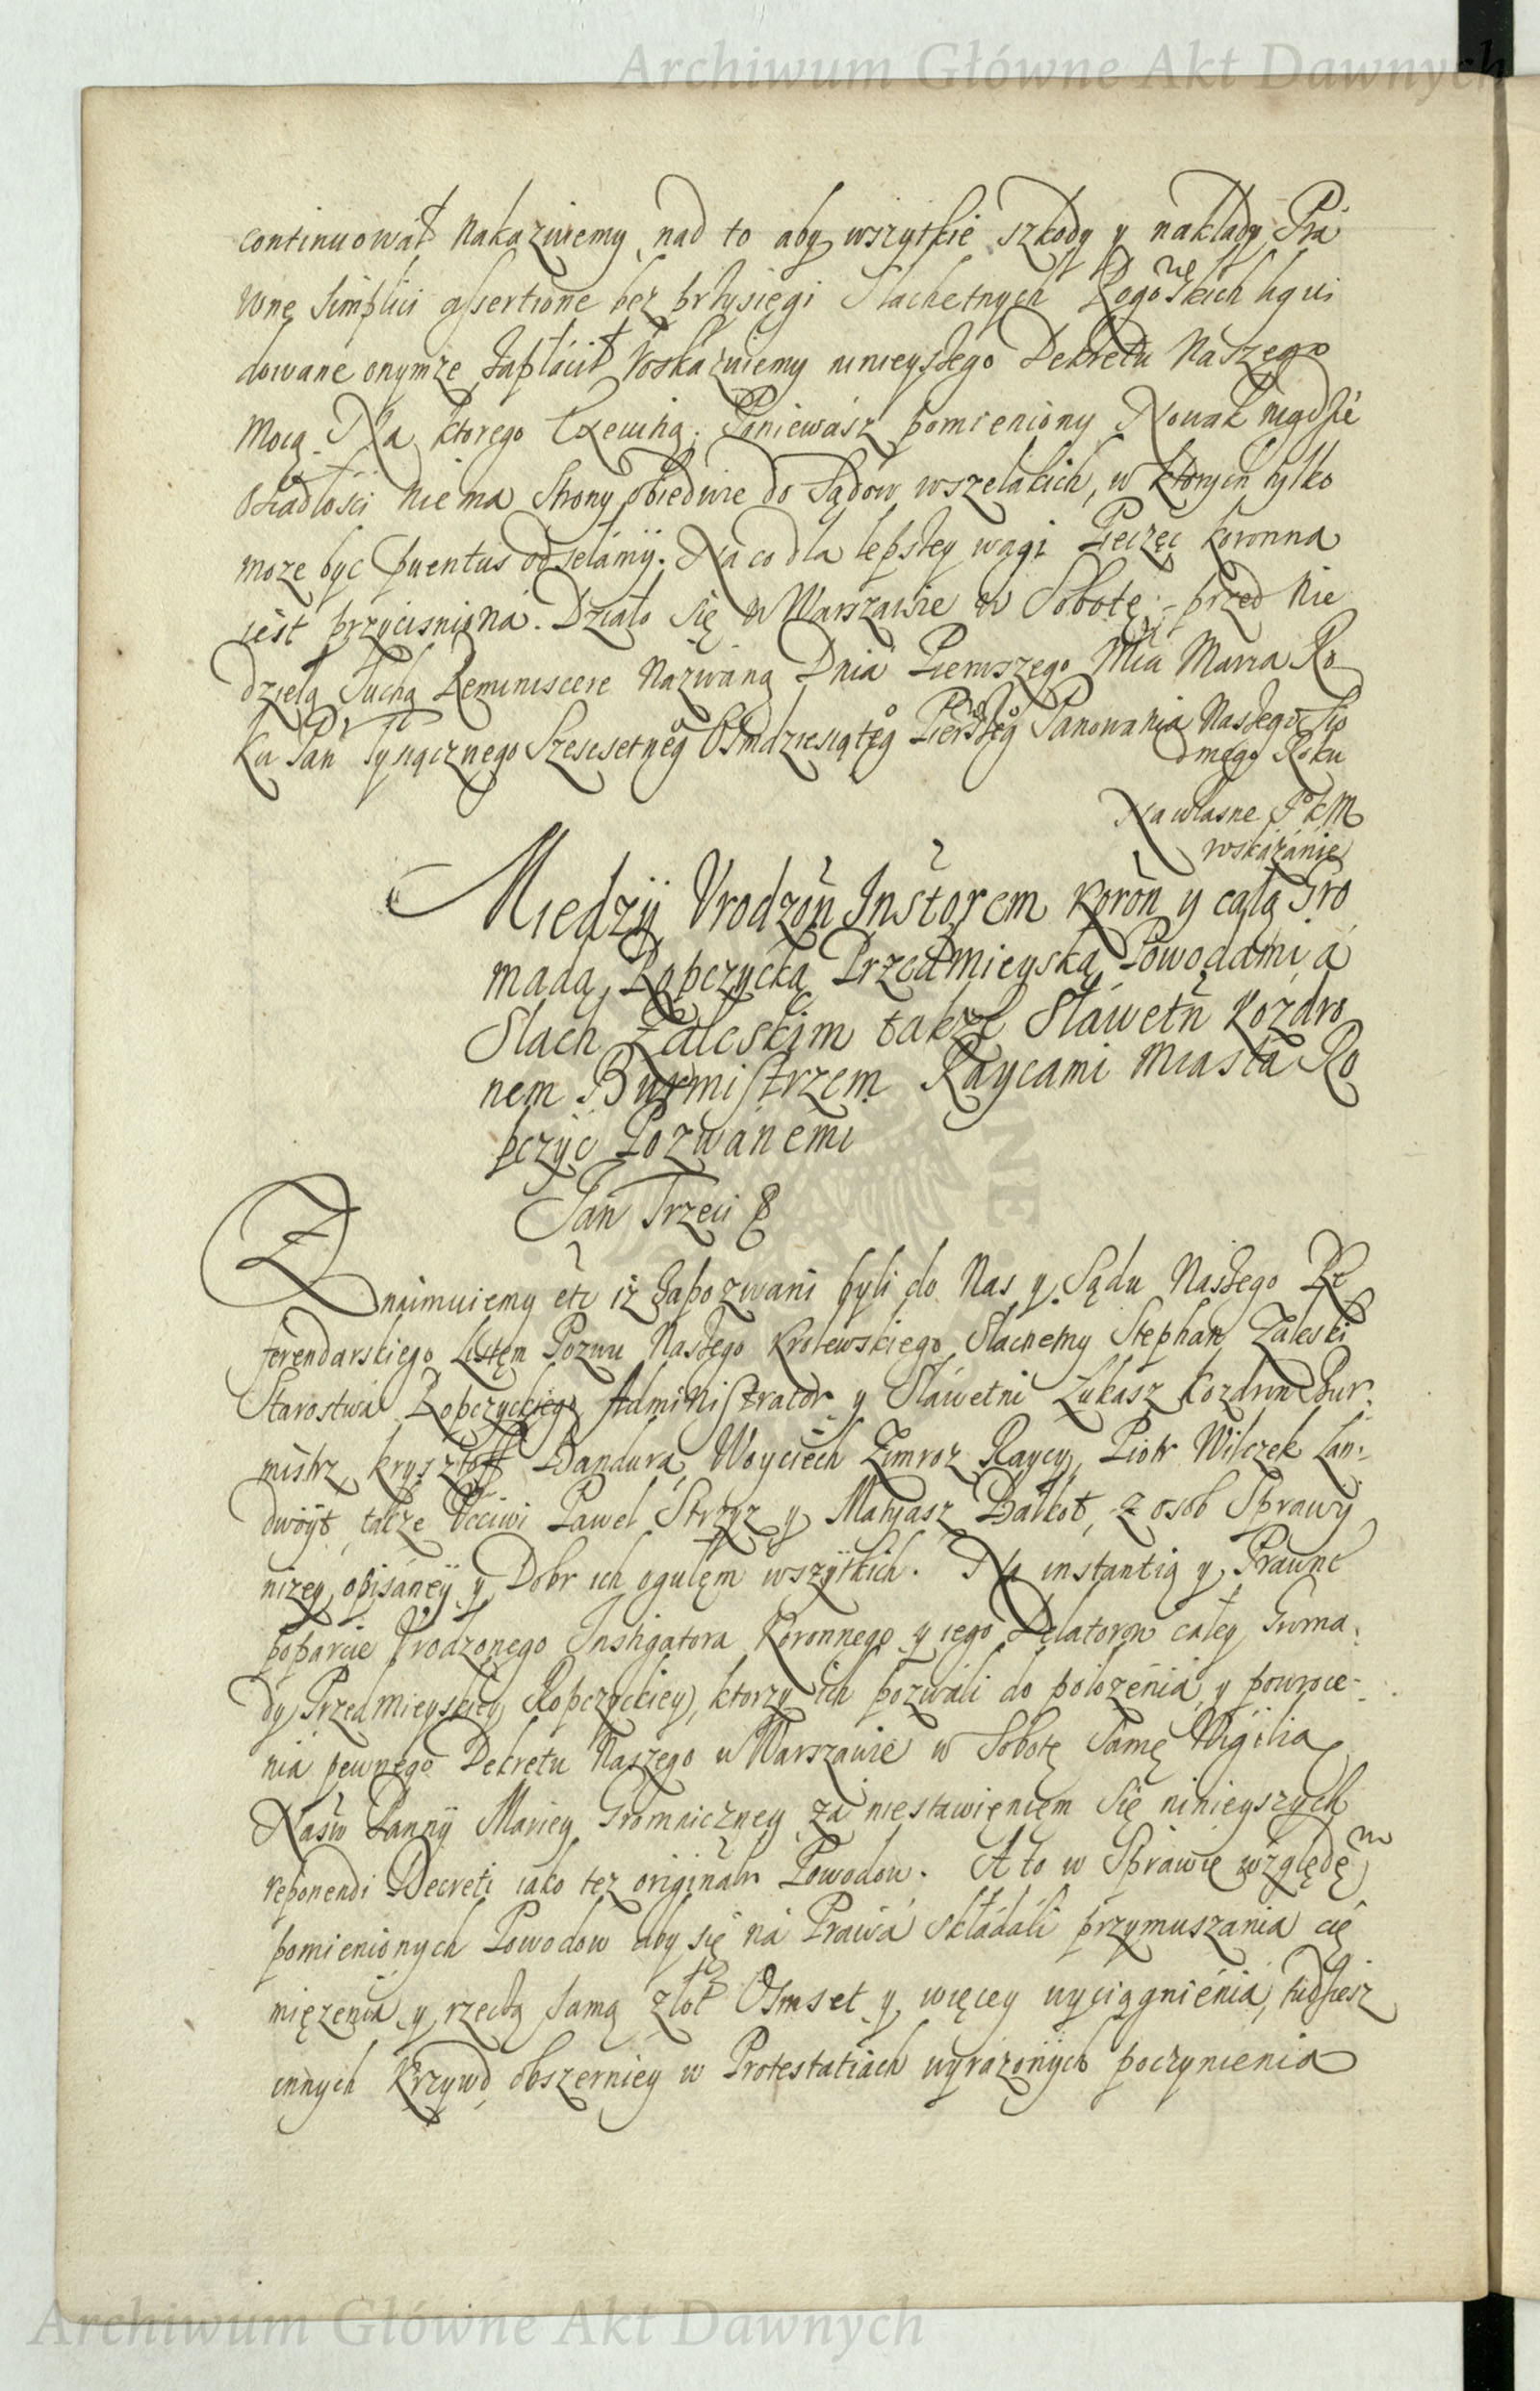 Archiwum Główne Akt Dawnych
continuował nakazuiemy, nad to aby wszytkie szkody y nakłady Pra
wne simplici assertione bez przysięgi Slachetnych Rogowskich liqui
dowane onymże zapłácił roskázuiemy ninieyszego Dekretu Naszego
mocą. Na ktorego Exeucią. Poniewász pomieniony Nowak nigdzie
Osiadłości nie ma Strony obiedwie do Sądow wszelakich, w ktorych tylko
moze byc ꝑuentus odsełamÿ. Na co dla lepszey wagi Pieczęc koronna
iest przycisniona. Działo się w Warszawie w Sobotę przed Nie
dzielą Suchą Reminiscere Názwáną Dnia Pierwszego Mca Marca Ro
ku Pan Tysiącznego Szescsetneg Osmdziesiąteg Pierwszeg Panowania Naszego Sio
dmego Roku
Na własne J K M
wskázánie
Miedzÿ Vrodzon Instorem koron y całą Gro
madą Ropczycką Przedmieyską Powodami á
Slach Zaleskim także Sławetn Kozdro
nem Burmistrzem Raycami Miasta Ro
pczyc Pozwánemi
Jan Trzeci
Znaimuiemy etc iż zapozwani byli do Nas y Sądu Naszego Re
ferendarskiego Listem Pozwu Naszego Krolewskiego Slachetny Stephan Zaleski
Starostwa Ropczyckiego Administrator y Sławetni Łukasz Kozdron Bur:
mistrz, Krysztoff Bandura, Woyciech Zimroz Raycy, Piotr Wilczek Lan:
dwoyt, także Vcciwi Paweł Strzyz y Matyasz Bałkot, z osob Sprawy
nizey opisáney y Dobr ich ogułem wszytkich. Na instantią y Prawne
poparcie Vrodzonego Instigatora Koronnego y iego Delatorow całey Groma:
dy Przedmieyskiey Ropczyckiey, ktorzy ich pozwáli do położenia y powroce-
nia pewnego Dekretu Naszego w Warszawie w Sobotę Samę Wigilią
Naśw Pannÿ Mariey Gromniczney za niestawieniem się ninieyszych
reponendi Decreti iako tez originaln Powodow. A to w Sprawie względem
pomienionych Powodow aby się ná Prawa składáli przymuszania cię
mięzenia y rzecką Samą złot Osmset y więcey wyciągnienia, tudziesz
innych Krzywd obszerniey w Protestatiach wyrazonych poczynienia
Archiwum Główne Akt Dawnych